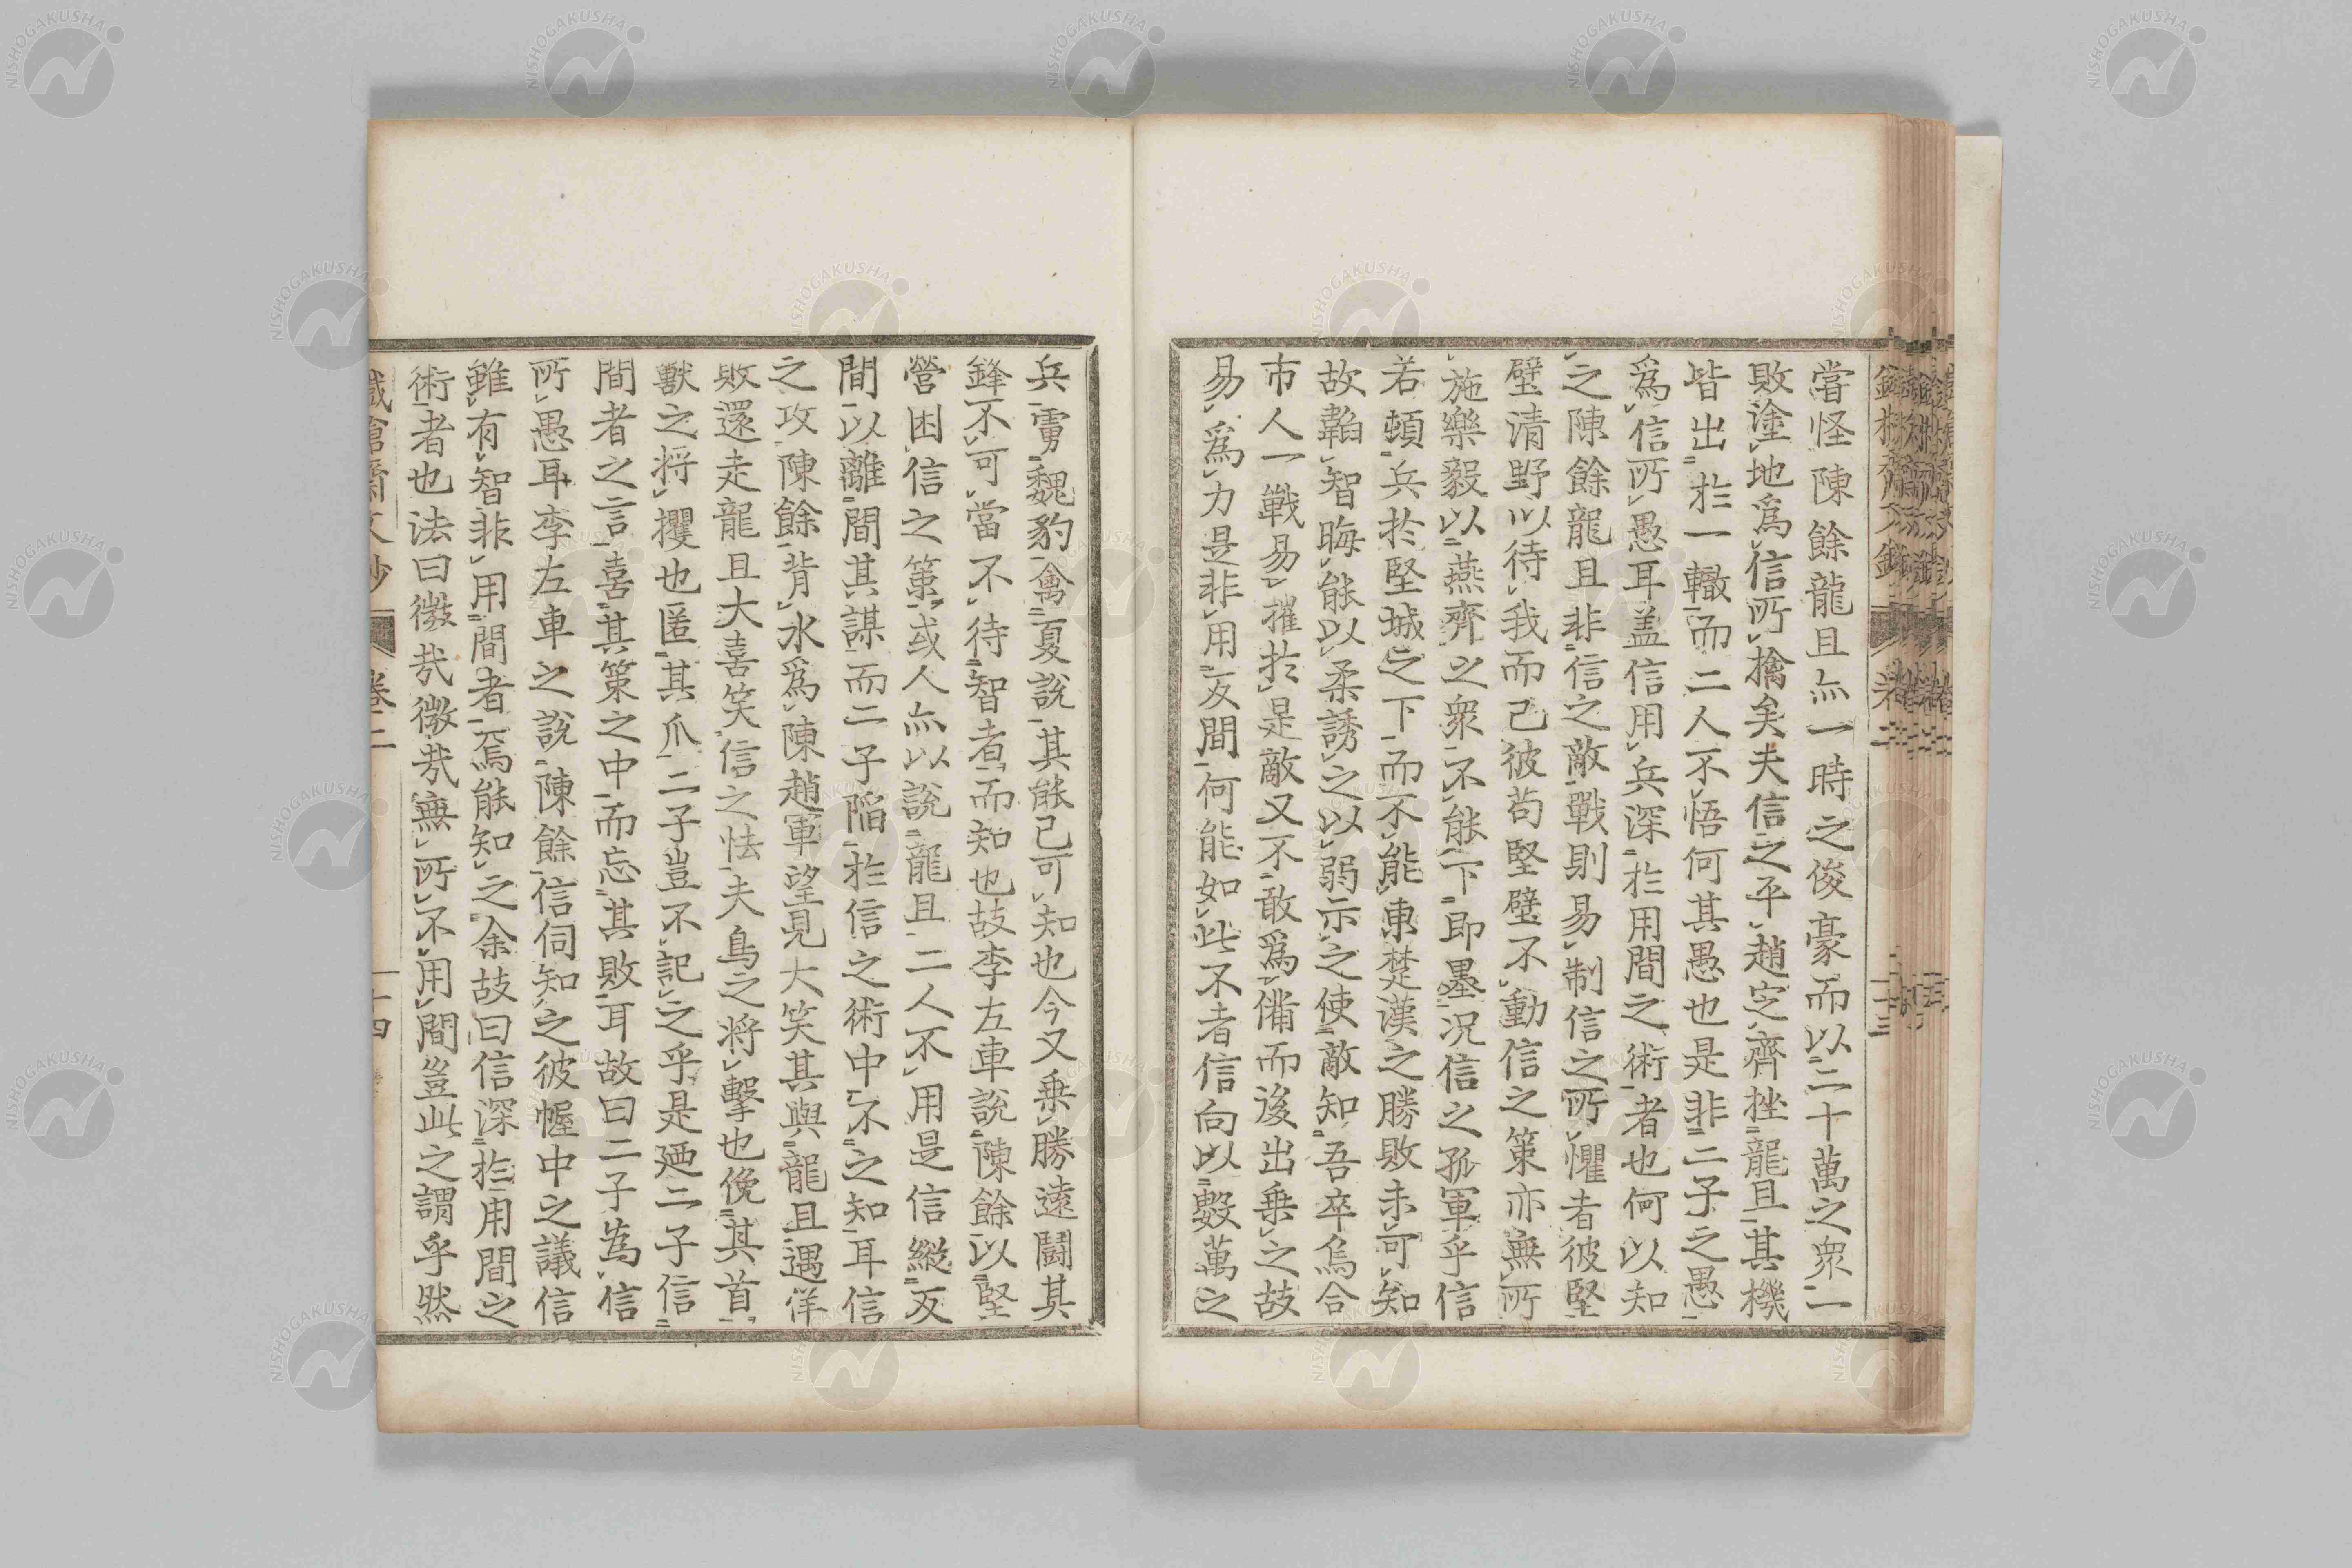 嘗怪陳餘龍且亦一時之俊豪而以二十萬之衆一
敗塗地爲信所擒矣夫信之平趙定齊挫龍且其機
皆出於一轍而二人不悟何其愚也是非二子之愚
爲信所愚耳盖信用兵深於用間之術者也何以知
之陳餘龍且非信之敵戰則易制信之所懼者彼堅
壁清野以待我而已彼苟堅壁不動信之策亦無所
施樂毅以燕齊之衆不能下即墨况信之孤軍乎信
若頓兵於堅城之下而不能東楚漢之勝敗未可知
故韜智晦能以柔誘之以弱示之使敵知吾卒烏合
市人一戰易摧於是敵又不敢爲備而後出乗之故
易爲力是非用反間何能如此不者信向以數萬之
兵虜魏豹禽夏說其能已可知也今又乗勝遠鬪其
鋒不可當不待智者而知也故李左車說陳餘以堅
營困信之策或人亦以說龍且二人不用是信縱反
間以離間其謀而二子陷於信之術中不之知耳信
之攻陳餘背水爲陳趙軍望見大笑其與龍且遇佯
敗還走龍且大喜笑信之怯夫鳥之將擊也俛其首
獸之将攫也匿其爪二子豈不記之乎是廼二子信
間者之言喜其策之中而忘其敗耳故曰二子為信
所愚耳李左車之說陳餘信伺知之彼幄中之議信
雖有智非用間者焉能知之余故曰信深於用間之
術者也法曰微哉微哉無所不用間豈此之謂乎然
卷二
NISHOGAKUSHA